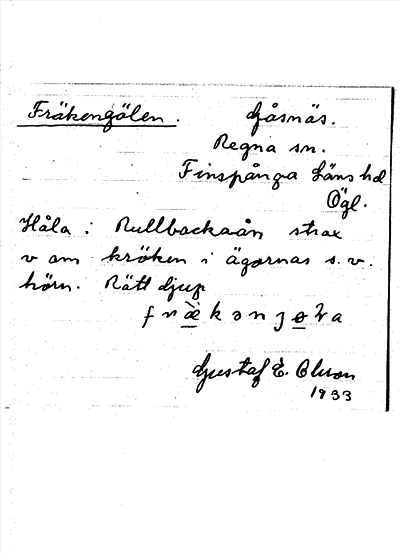 Fräkengölen. Gåsnäs.
Regna sn.
Finspånga läns hd
Ögl.
Håla i Rullbackaån strax
v om kröken i ägornas s.v.
hörn. Rätt djup
Gustaf E. Olsson
1933